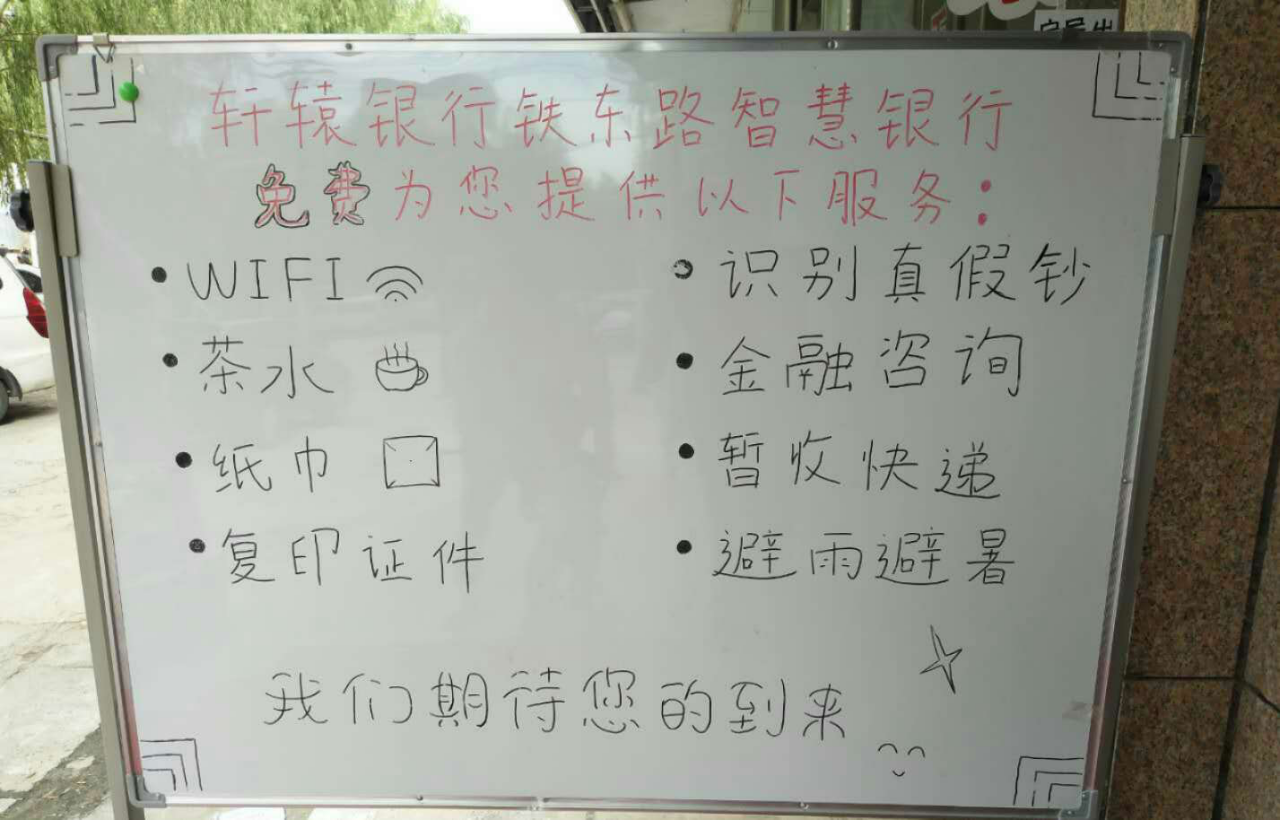 轩辕银行铁东路智慧银行
免费为您提供以下服务：
• WIFI
• 识别真假钞
• 茶水
• 金融咨询
• 纸巾
• 暂收快递
• 复印证件
• 避雨避暑
我们期待您的到来